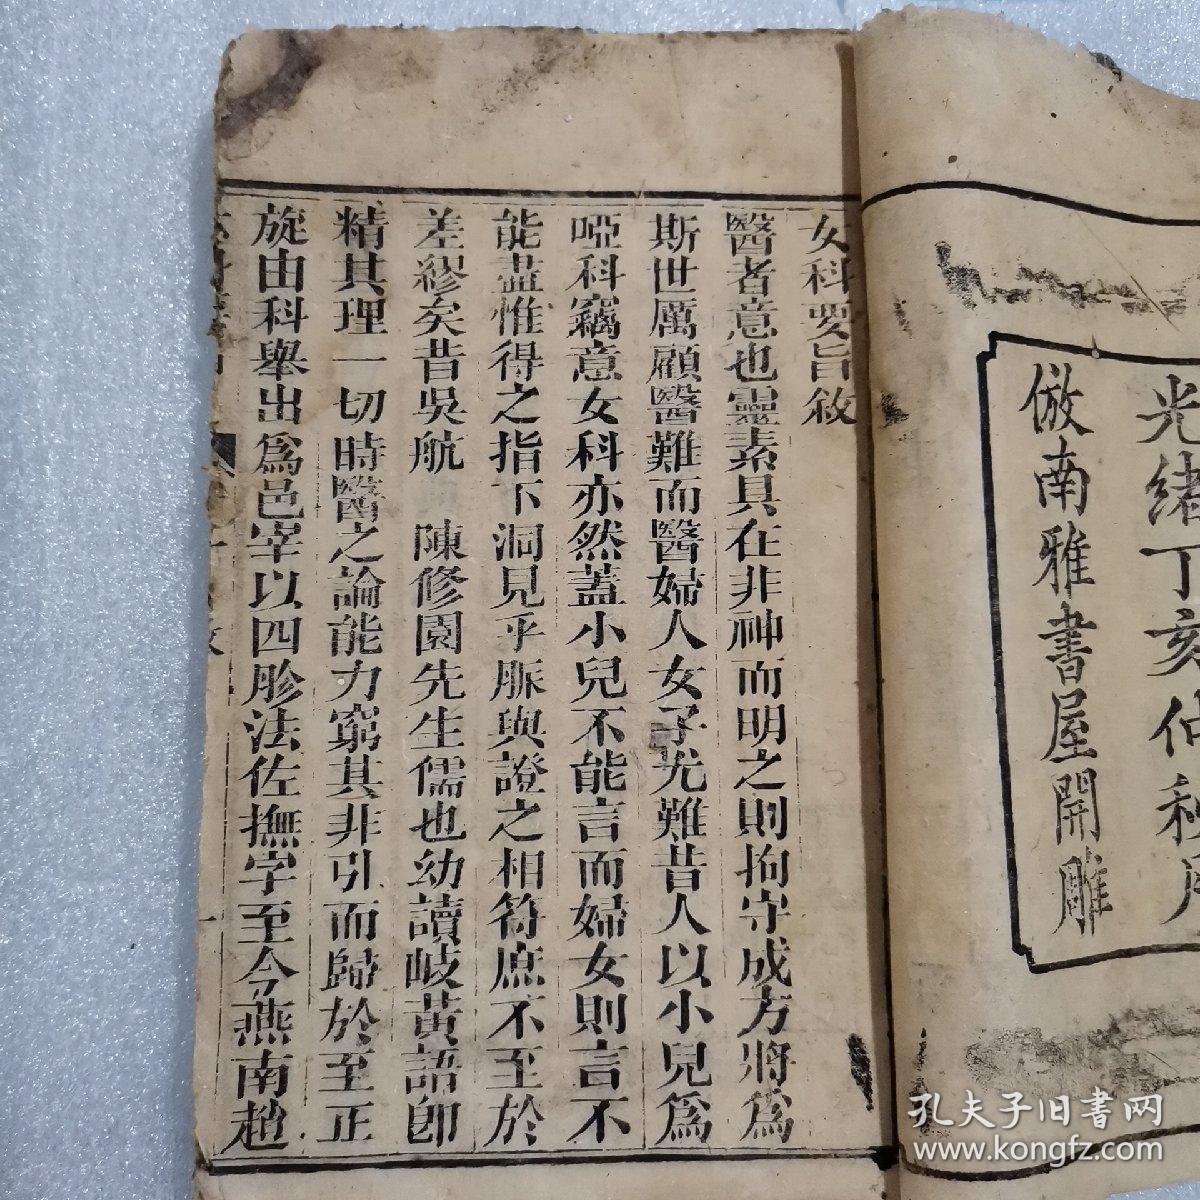 光緒丁亥仲秋
倣南雅書屋開雕
女科要旨敘
醫者意也靈素具在非神而明之則拘守成方將為
斯世厲顧醫難而醫婦人女子尤難昔人以小兒為
啞科竊意女科亦然蓋小兒不能言而婦女則言不
能盡惟得之指下洞見乎脈與證之相符庶不至於
差繆矣昔吳航 陳修園先生儒也幼讀岐黃語即
精其理一切時醫之論能力窮其非引而歸於至正
旋由科舉出為邑宰以四胗法佐撫字至今燕南趙
孔夫子旧书网
www.kongfz.com